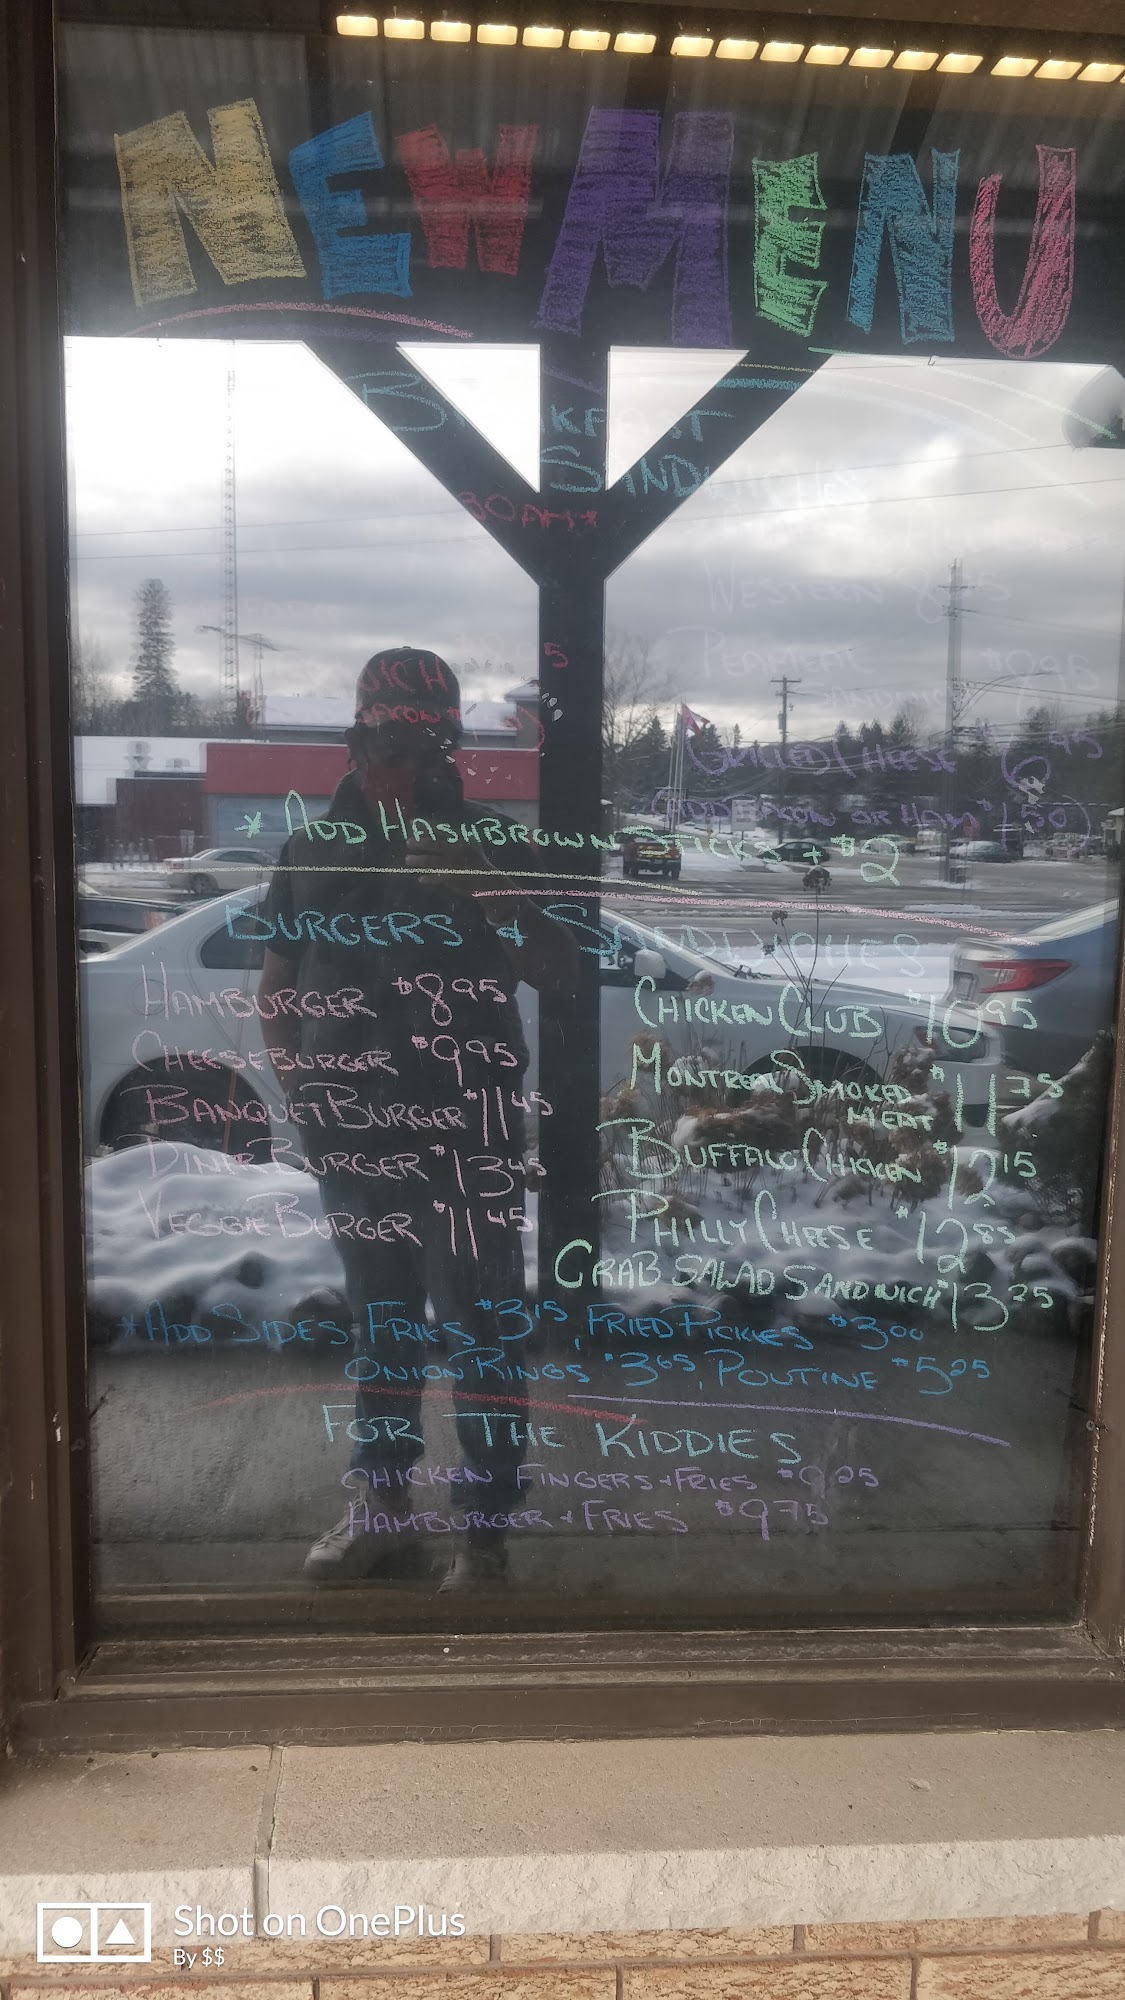 NEW MENU
SANDWICHES
30AM*
WESTERN
PEAMEAL
SANDWICH 895
GRILLED CHEESE $6 95
(ADD BACON OR HAM $1.50)
* ADD HASHBROWN STICKS + $2
BURGERS & SANDWICHES
HAMBURGER $8 95
CHEESEBURGER $9 95
BANQUET BURGER $11 45
DINER BURGER $13 45
VEGGIE BURGER $11 45
CHICKEN CLUB $10 95
MONTREAL SMOKED MEAT $11 75
BUFFALO CHICKEN $12 15
PHILLY CHEESE $12 85
CRAB SALAD SANDWICH $13 25
*ADD SIDES, FRIES $3 15, FRIED PICKLES $3 00
ONION RINGS $3 65, POUTINE $5 25
FOR THE KIDDIES
CHICKEN FINGERS + FRIES $9 25
HAMBURGER + FRIES $9 75
Shot on OnePlus
By $$